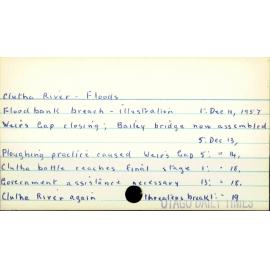 Clutha River - Floods
Flood bank breach - illustration 1: Dec 11, 1957
Weir's Gap closing; Bailey bridge now assembled
5: Dec 13,
Ploughing practice caused Weir's Gap 5: " 14,
Clutha battle reaches final stage 1: " 18,
Government assistance necessary 13: " 18,
Clutha River again threatens break 1: " 19
OTAGO DAILY TIMES